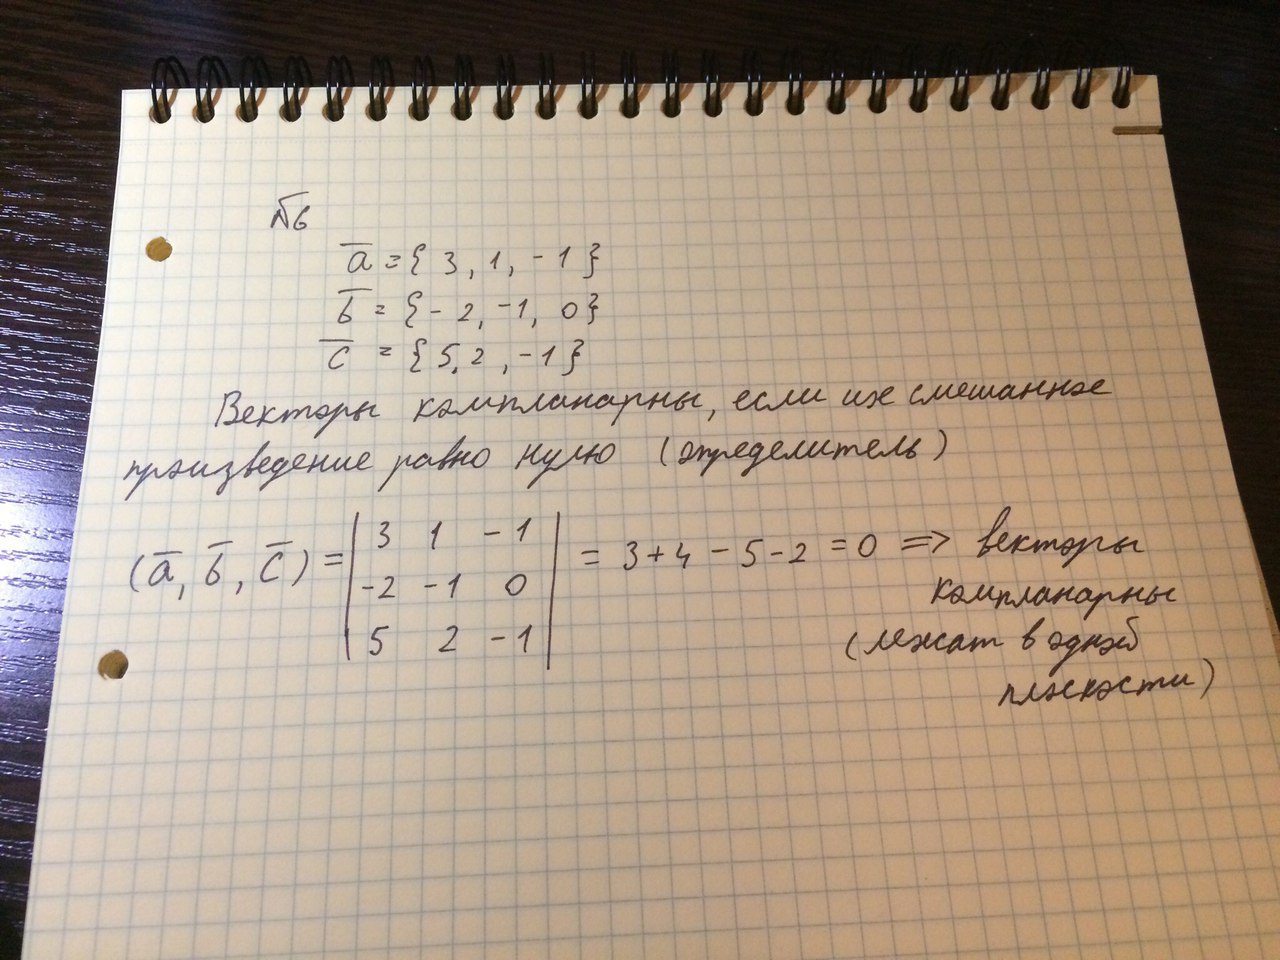 №6
a̅ = { 3, 1, -1 }
b̅ = { -2, -1, 0 }
c̅ = { 5, 2, -1 }
Векторы компланарны, если их смешанное
произведение равно нулю (определитель)
(a̅, b̅, c̅) = | 3 1 -1 | = 3+4-5-2 = 0 => векторы
| -2 -1 0 | компланарны
| 5 2 -1 | (лежат в одной
плоскости)